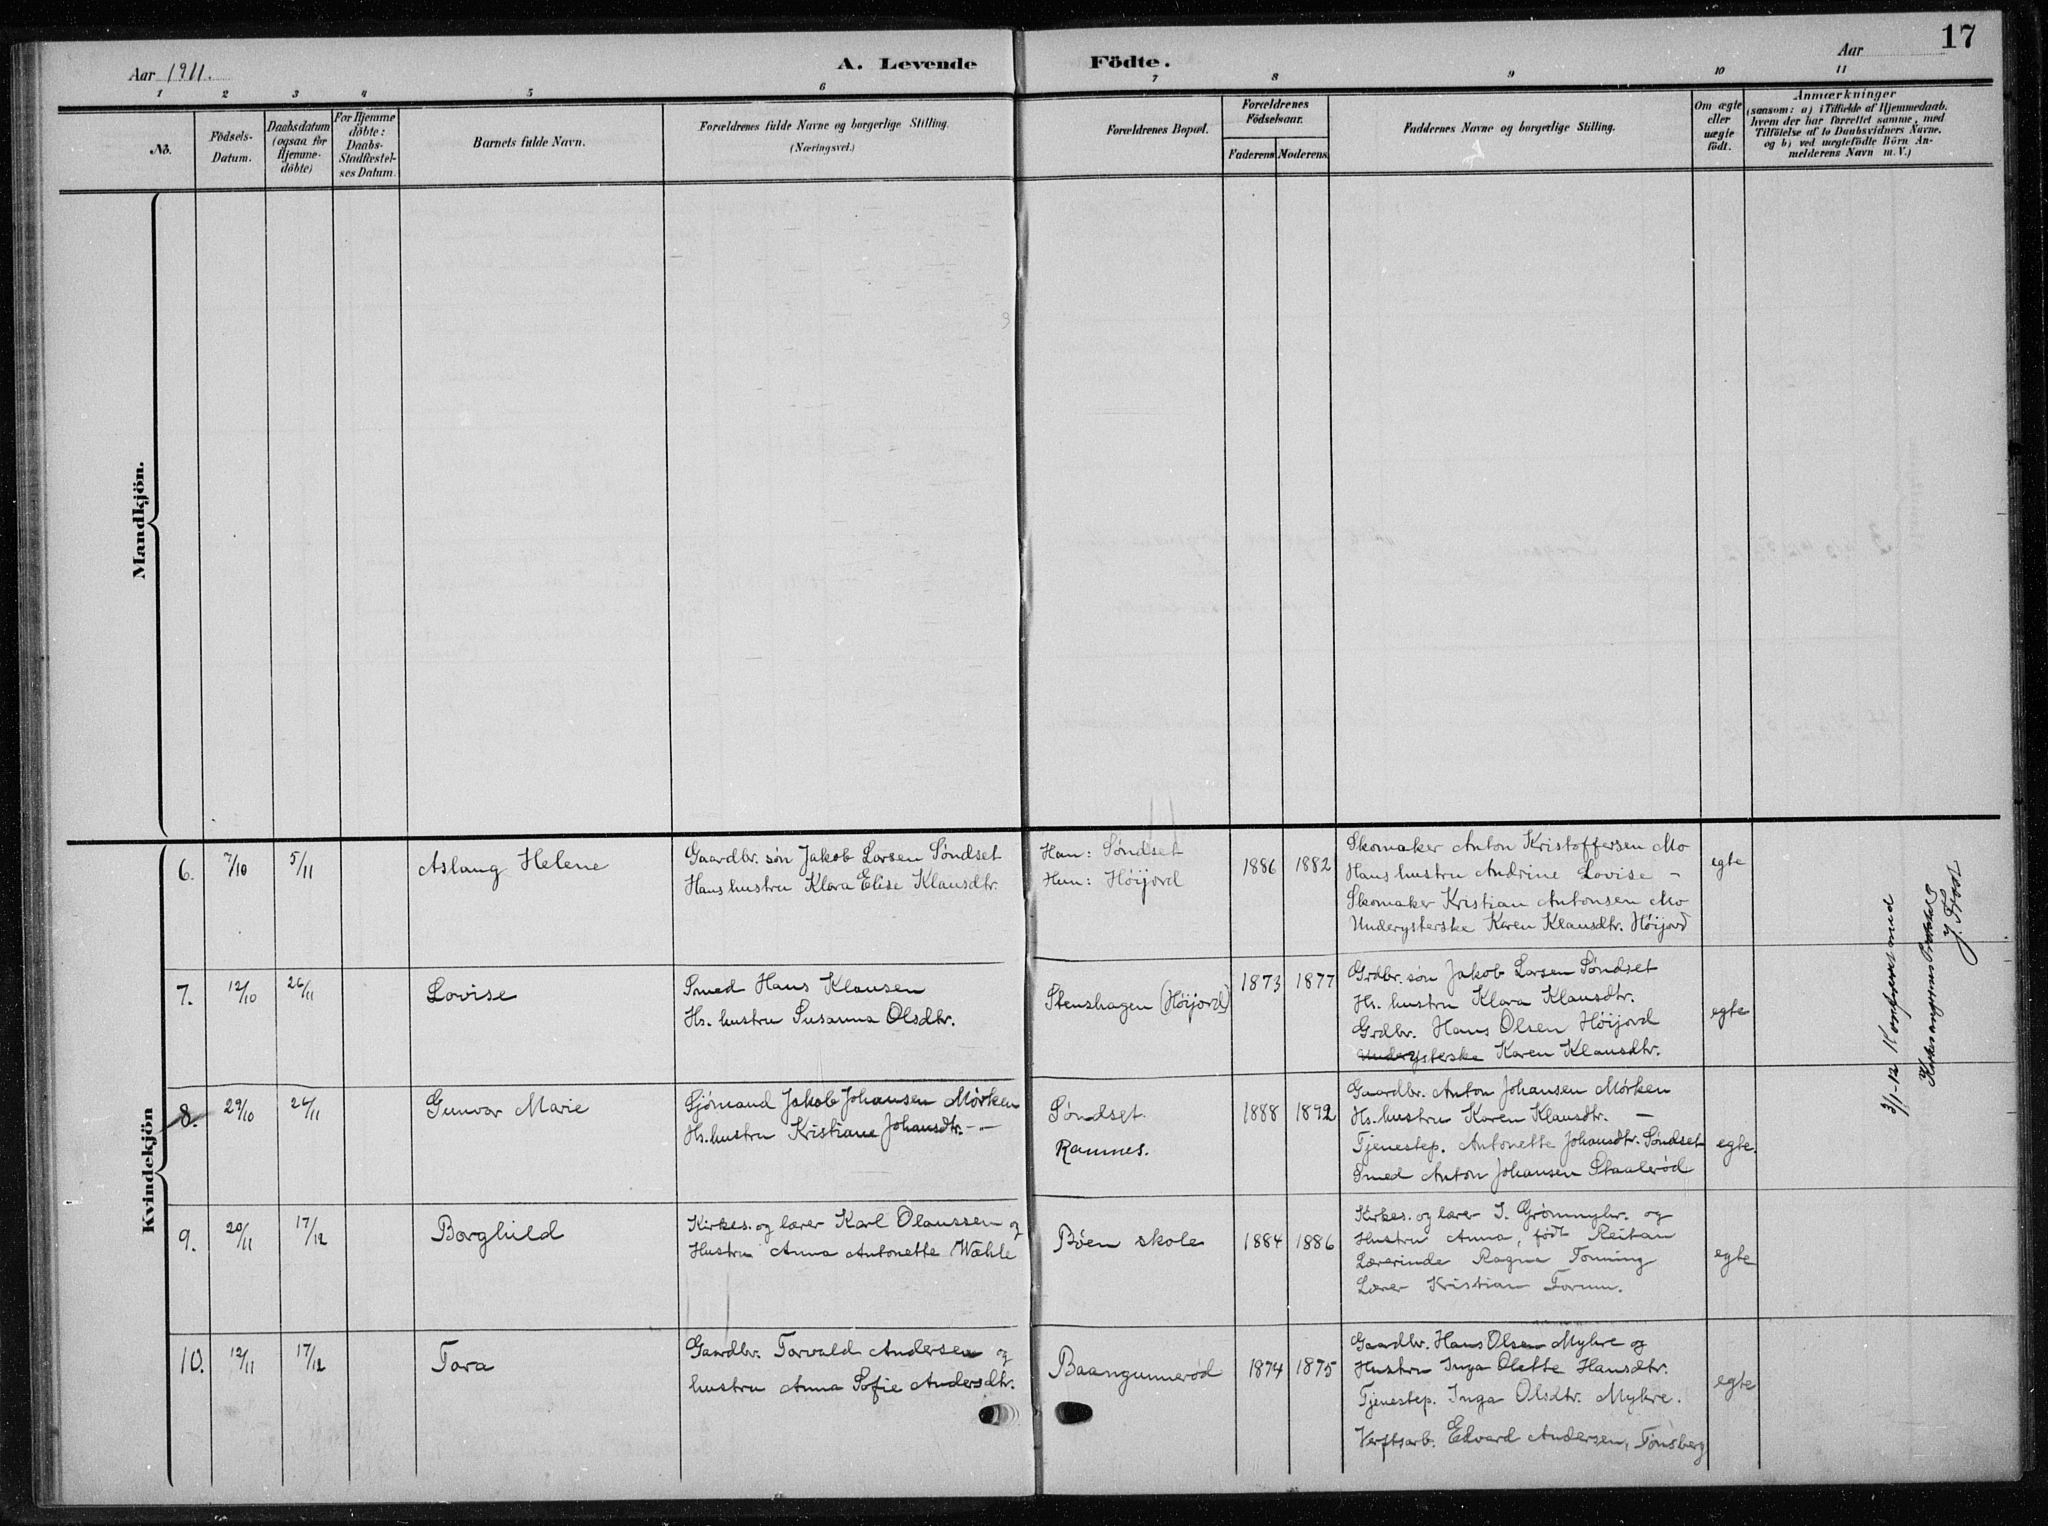 Aar 1911.
A. Levende Födte.
Aar
17
1 2 3 4 5 6 7 8 9 10 11
No.
Födsels-Datum.
Daabsdatum (ogsaa for Hjemme-döbte)
For Hjemme döbte: Daabs-Stadfæstel-ses Datum.
Barnets fulde Navn.
Forældrenes fulde Navne og borgerlige Stilling.
(Næringsvei.)
Forældrenes Bopæl.
Forældrenes Födselsaar.
Faderens Moderens
Faddernes Navne og borgerlige Stilling.
Om ægte eller uægte födt.
Anmærkninger
(saasom: a) i Tilfælde af Hjemmedaab, hvem der har forrettet samme, med Tilföielse af to Daabsvidners Navne. og b) ved uægtefödte Börn An-melderens Navn m. V.)
Mandkjön.
Kvindekjön
6. 7/10 5/11 Aslaug Helene
Gaardbr. søn Jakob Larsen Søndset
Hans hustru Klara Elise Klausdtr.
Han: Søndset
Hun: Høijord
1886 1882
Skomaker Anton Kristoffersen Mo
Hans hustru Andrine Lovise –
Skomaker Kristian Antonsen Mo
Underysterske Karen Klausdtr. Høijord
egte
7. 12/10 26/11 Lovise
Smed Hans Klausen
Hs. hustru Susanna Olsdtr.
Stenshagen (Høijord)
1873 1877
Grdbr. søn Jakob Larsen Søndset
Hs. hustru Klara Klausdtr.
Grdbr. Hans Olsen Høijord
Underysterske Karen Klausdtr.
egte
8. 29/10 26/11 Gunvor Marie
Sjømand Jakob Johansen Mørken
Hs. hustru Kristiane Johansdtr. -"-
Søndset
Ramnes.
1888 1892
Gaardbr. Anton Johansen Mørken
Hs. hustru Karen Klausdtr. –
Tjenestep. Antonette Johansdtr. Søndset
Smed Anton Johansen Staalerød
egte.
9. 20/11 17/12 Borghild
Kirkes. og lærer Karl Olaussen og
Hustru Anna Antonette Wæhle
Bøen skole
1884 1886
Kirkes. og lærer I. Grømmyhr. og
Hustru Anna, født Reitan
Lærerinde Ragna Tonning
Lærer Kristian Forum.
egte
10. 12/11 17/12 Tora
Gaardbr. Torvald Andersen og
hustru Anna Sofie Andersdtr.
Baangunnerød
1874 1875
Gaardbr. Hans Olsen Myhre og
Hustru Inga Olette Hansdtr.
Tjenestep. Inga Olsdtr. Myhre.
Verftsarb. Edvard Andersen, Tønsberg
egte
3/1-12 Konfereret med
J. Frost